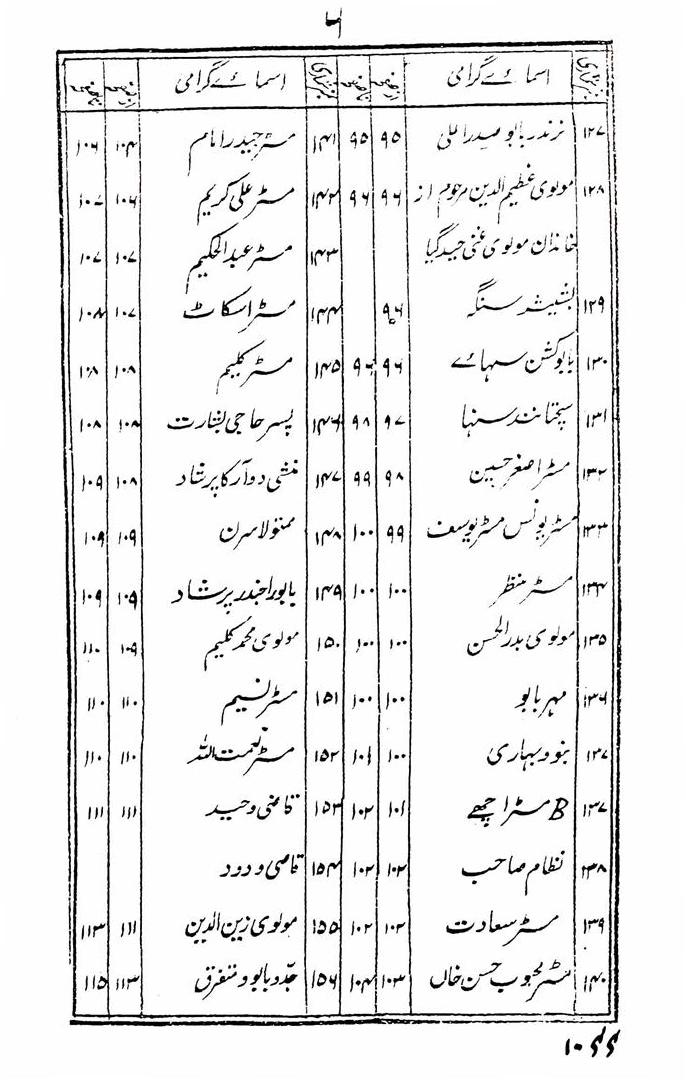 نمبر شمار اسمائے گرامی از صفحہ تا صفحہ نمبر شمار اسمائے گرامی از صفحہ تا صفحہ
۱۲۷ نرندر بابو صدر اعلی ۹۵ ۹۵ ۱۴۱ مسٹر حیدر امام ۱۰۴ ۱۰۶
۱۲۸ مولوی عظیم الدین مرحوم از ۹۶ ۹۶ ۱۴۲ مسٹر علی کریم ۱۰۶ ۱۰۷
خاندان مولوی غنی حیدر گیا ۱۴۳ مسٹر عبدالحکیم ۱۰۷ ۱۰۷
۱۲۹ بشیشر سنگہ ۹۶ ۱۴۴ مسٹر اسکاٹ ۱۰۷ ۱۰۸
۱۳۰ بابو کشن سہائے ۹۶ ۹۶ ۱۴۵ مسٹر کلیم ۱۰۸ ۱۰۸
۱۳۱ سچتانند سنہا ۹۷ ۹۸ ۱۴۶ پسر حاجی بشارت ۱۰۸ ۱۰۸
۱۳۲ مسٹر اصغر حسین ۹۸ ۹۹ ۱۴۷ منشی دوآرکا پرشاد ۱۰۸ ۱۰۹
۱۳۳ مسٹر یونس مسٹر یوسف ۹۹ ۱۰۰ ۱۴۸ منولا سرن ۱۰۹ ۱۰۹
۱۳۴ مسٹر منظر ۱۰۰ ۱۰۰ ۱۴۹ بابو راجندر پرشاد ۱۰۹ ۱۰۹
۱۳۵ مولوی بدر الحسن ۱۰۰ ۱۰۰ ۱۵۰ مولوی محمد کلیم ۱۰۹ ۱۱۰
۱۳۶ مہر بابو ۱۰۰ ۱۰۰ ۱۵۱ مسٹر نسیم ۱۱۰ ۱۱۰
۱۳۷ بنود بہاری ۱۰۰ ۱۰۱ ۱۵۲ مسٹر نعمت اللہ ۱۱۰ ۱۱۰
۱۳۷ B مسٹر اچھے ۱۰۱ ۱۰۲ ۱۵۳ قاضی وحید ۱۱۱ ۱۱۱
۱۳۸ نظام صاحب ۱۰۲ ۱۰۲ ۱۵۴ قاضی ودود
۱۳۹ مسٹر سعادت ۱۰۲ ۱۰۲ ۱۵۵ مولوی زین الدین ۱۱۱ ۱۱۳
۱۴۰ مسٹر محبوب حسن خاں ۱۰۳ ۱۰۴ ۱۵۶ جدو بابو و متفرق ۱۱۳ ۱۱۵